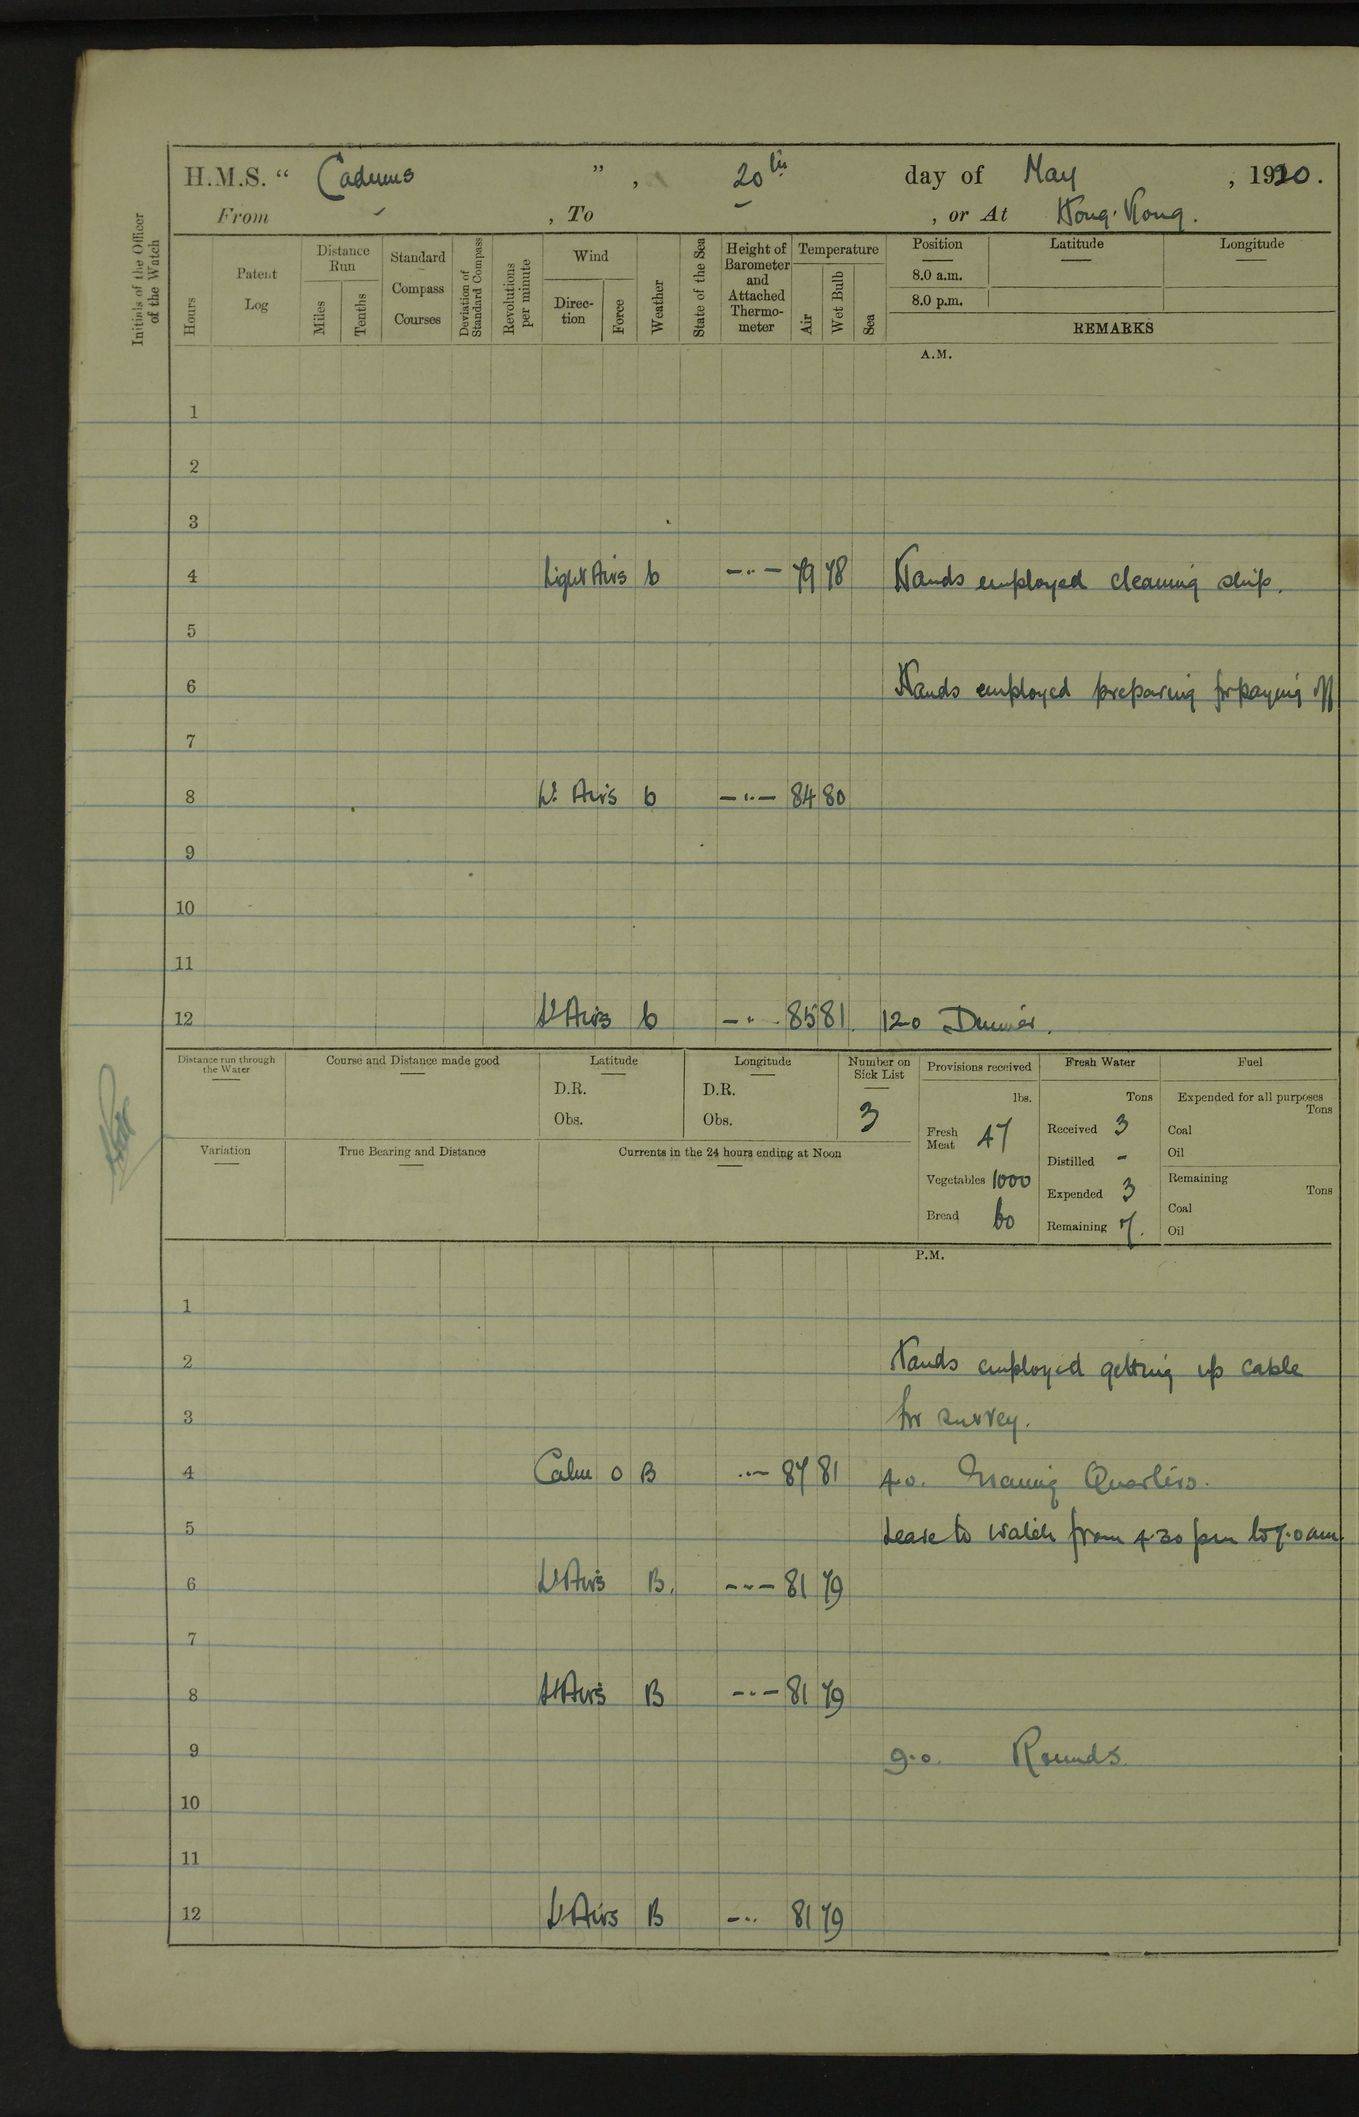 H.M.S. “ Cadmus ” , 20th day of May , 1920.
From - , To - , or At Hong-Kong.
Initials of the Officer of the Watch
Hours
Patent Log
Distance Run
Miles
Tenths
Standard Compass Courses
Deviation of Standard Compass
Revolutions per minute
Wind
Direc-tion
Force
Weather
State of the Sea
Height of Barometer and Attached Thermo-meter
Temperature
Air
Wet Bulb
Sea
Position Latitude Longitude
8.0 a.m.
8.0 p.m.
REMARKS
A.M.
1
2
3
4 Light Airs b -"- 79 78 Hands employed cleaning ship.
5
6 Hands employed preparing for paying off
7
8 Lt. Airs b -"- 84 80
9
10
11
12 Lt Airs b -". 85 81. 12-0 Dinner.
Distance run through the Water
Course and Distance made good
Latitude
D.R.
Obs.
Longitude
D.R.
Obs.
Number on Sick List
3
Provisions received
lbs.
Fresh Meat 47
Vegetables 1000
Bread 60
Fresh Water
Tons
Received 3
Distilled -
Expended 3
Remaining 7.
Fuel
Expended for all purposes
Tons
Coal
Oil
Remaining
Tons
Coal
Oil
Variation
True Bearing and Distance
Currents in the 24 hours ending at Noon
P.M.
1
2 Hands employed getting up cable
3 for survey.
4 Calm 0 B "- 87 81 4.0. Evening Quarters.
5 Leave to watch from 4.30 pm to 7.0 am.
6 Lt Airs B. -"- 81 79
7
8 Lt Airs B -"- 81 79
9 9.0. Rounds.
10
11
12 Lt Airs B -" 81 79